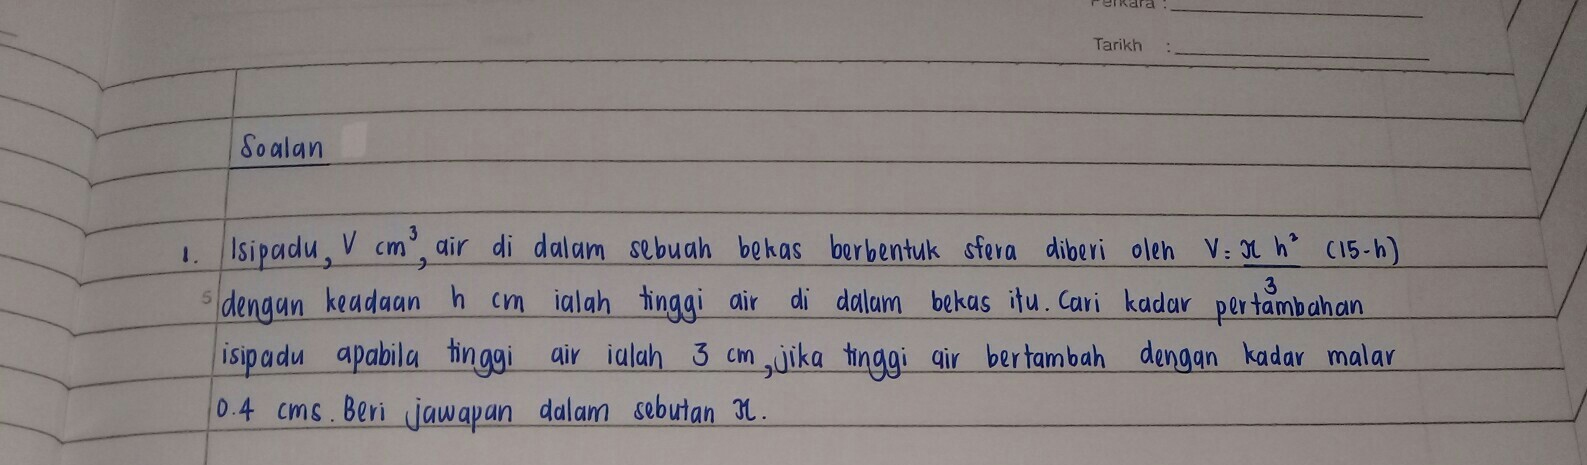 Perkara :
Tarikh :
Soalan
1. Isipadu, V cm³, air di dalam sebuah bekas berbentuk sfera diberi oleh V = π h² (15-h)
3
5 dengan keadaan h cm ialah tinggi air di dalam bekas itu. Cari kadar pertambahan
isipadu apabila tinggi air ialah 3 cm, jika tinggi air bertambah dengan kadar malar
0.4 cms. Beri jawapan dalam sebutan π.